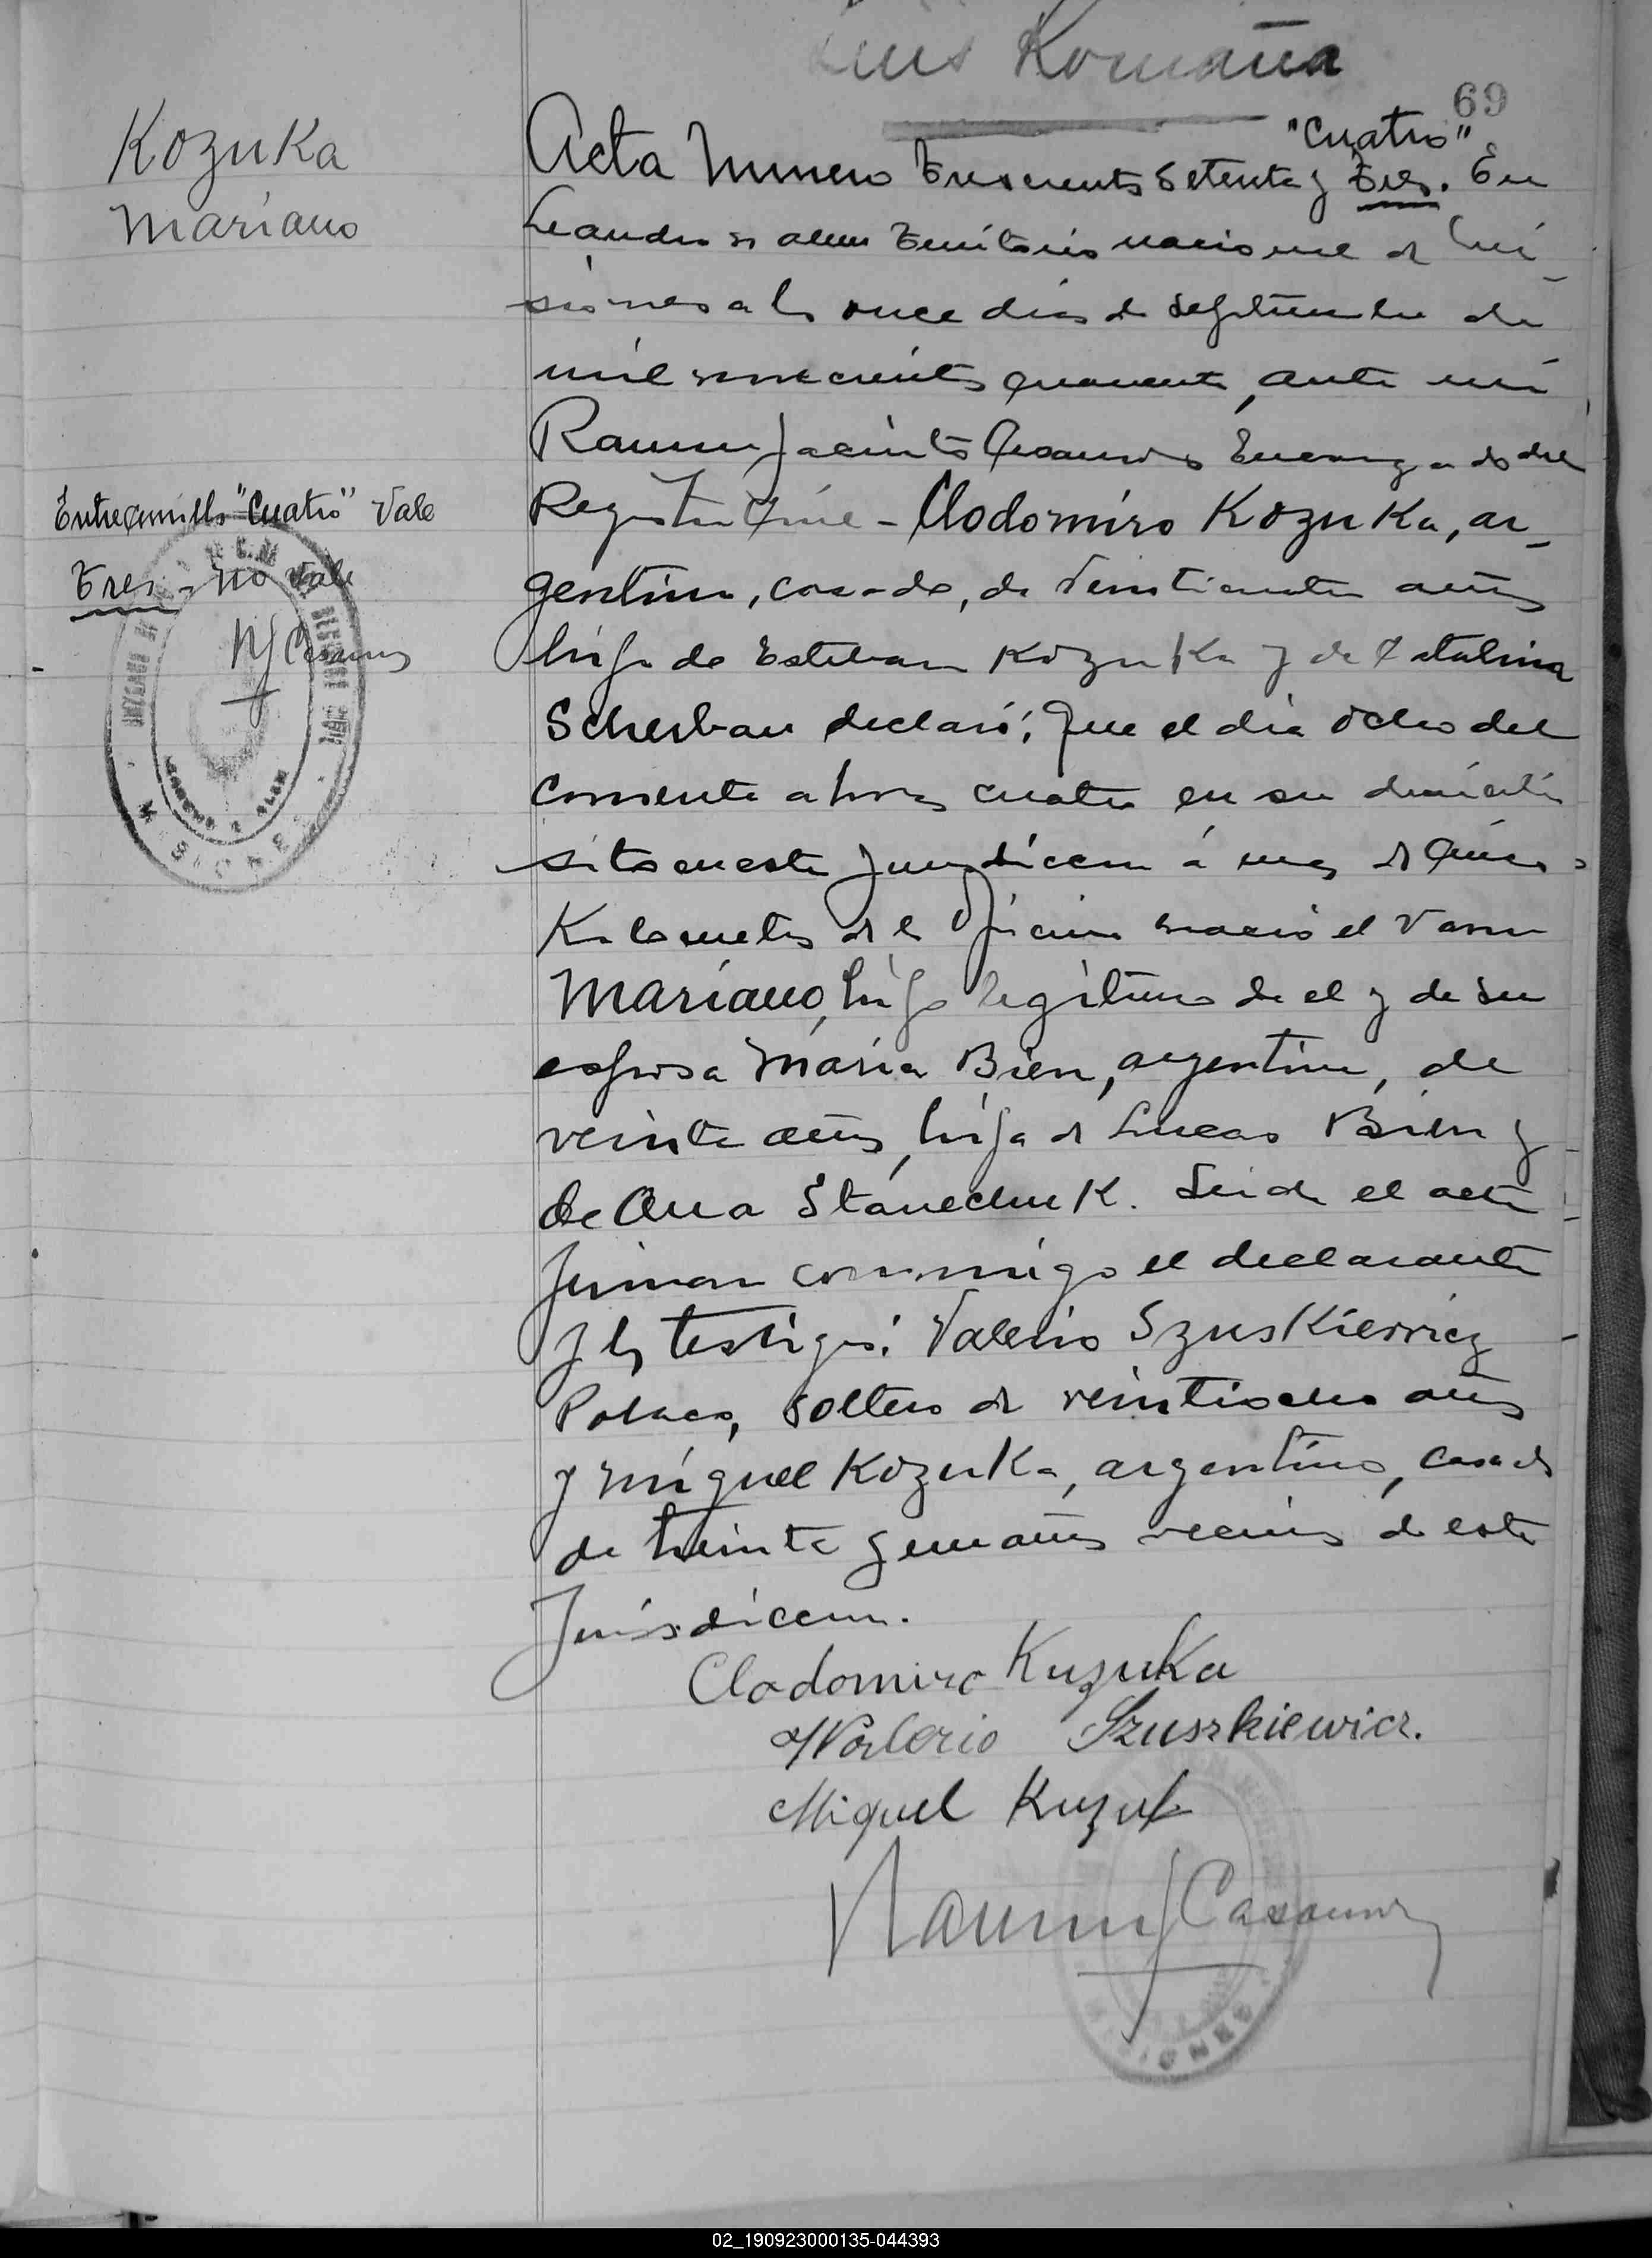 Luis Romaña
69
Kozuka
Mariano
"Cuatro"
Acta Numero Trescientos Setenta y Tres. En
Leandro N alem Territorio nacional de Mi_
siones a los once dias de Septiembre de
mil novecientos cuarenta, ante mi
Ramon Jacinto Casanova Encargado del
Registro Civil - Clodomiro Kozuka, ar_
gentino, casado, de veinticuatro años
hijo de Esteban Kozuka y de Catalina
Scherban declaró; Que el dia ocho del
Corriente a horas cuatro en su domicilio
sito en esta Jurisdiccion á unos
Kilometros de la Oficina nació el Varon
Mariano, hijo legitimo de el y de su
esposa Maria Bien, argentina, de
veinte años, hija de Lucas Bien y
de Ana Stanechuk. Leida el acta
firman conmigo el declarante
y los testigos: Valerio Szuskiewicz
Polaco, soltero de veintiocho años
y Miguel Kozuka, argentino, casado
de treinta y un años vecinos de esta
Jurisdiccion.
Entrecomillas "Cuatro" Vale
Tres - no Vale
RJ Casanova
MISIONES
Clodomiro Kuzuka
Walerio Szuszkiewicz.
Miguel Kuzuk
Ramon J Casanova
MISIONES
02_190923000135-044393